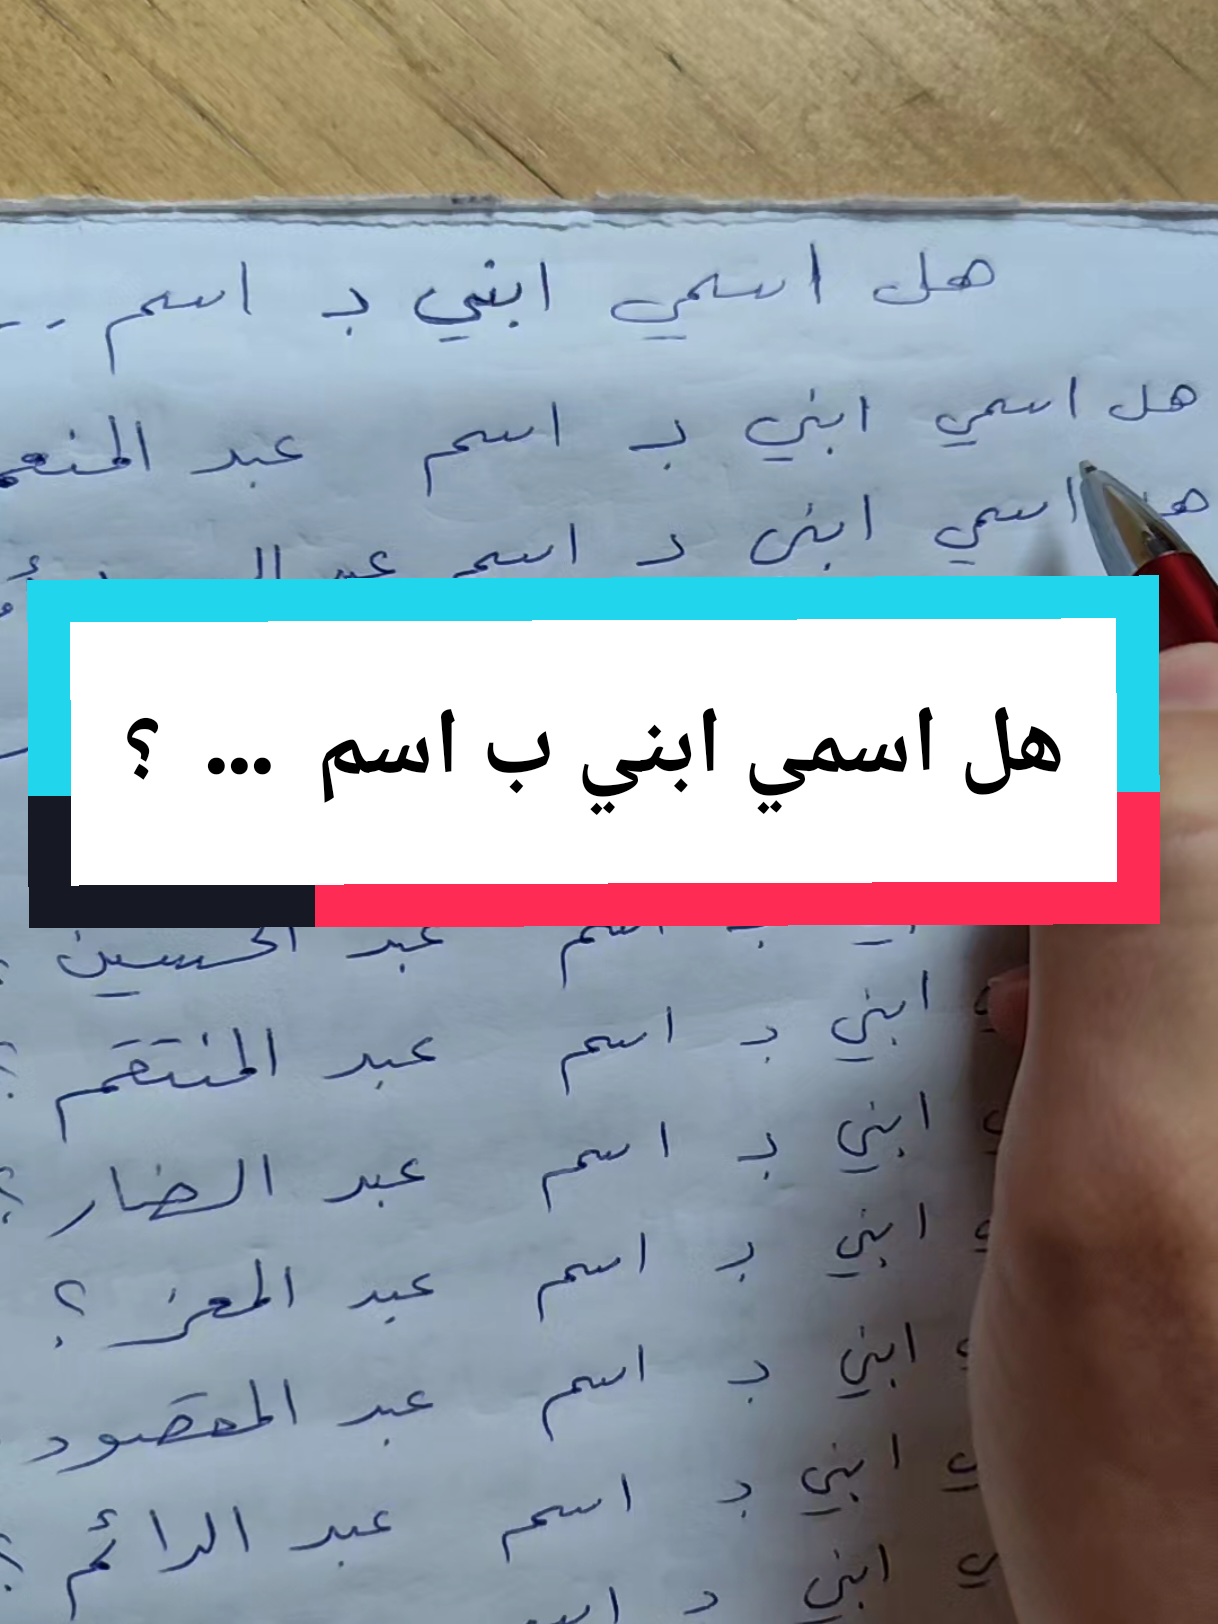 هل اسمي ابني بـ اسم --
هل اسمي ابني بـ اسم عبد المنعم
هل اسمي ابني بـ اسم عبد
هل اسمي ابني ب اسم ... ؟
بـ اسم عبد الحسين ؟
ابني بـ اسم عبد المنتقم ؟
ابني بـ اسم عبد الضار ؟
ابني بـ اسم عبد المعز ؟
ابني بـ اسم عبد المقصود
ابني بـ اسم عبد الدائم ؟
ابني بـ